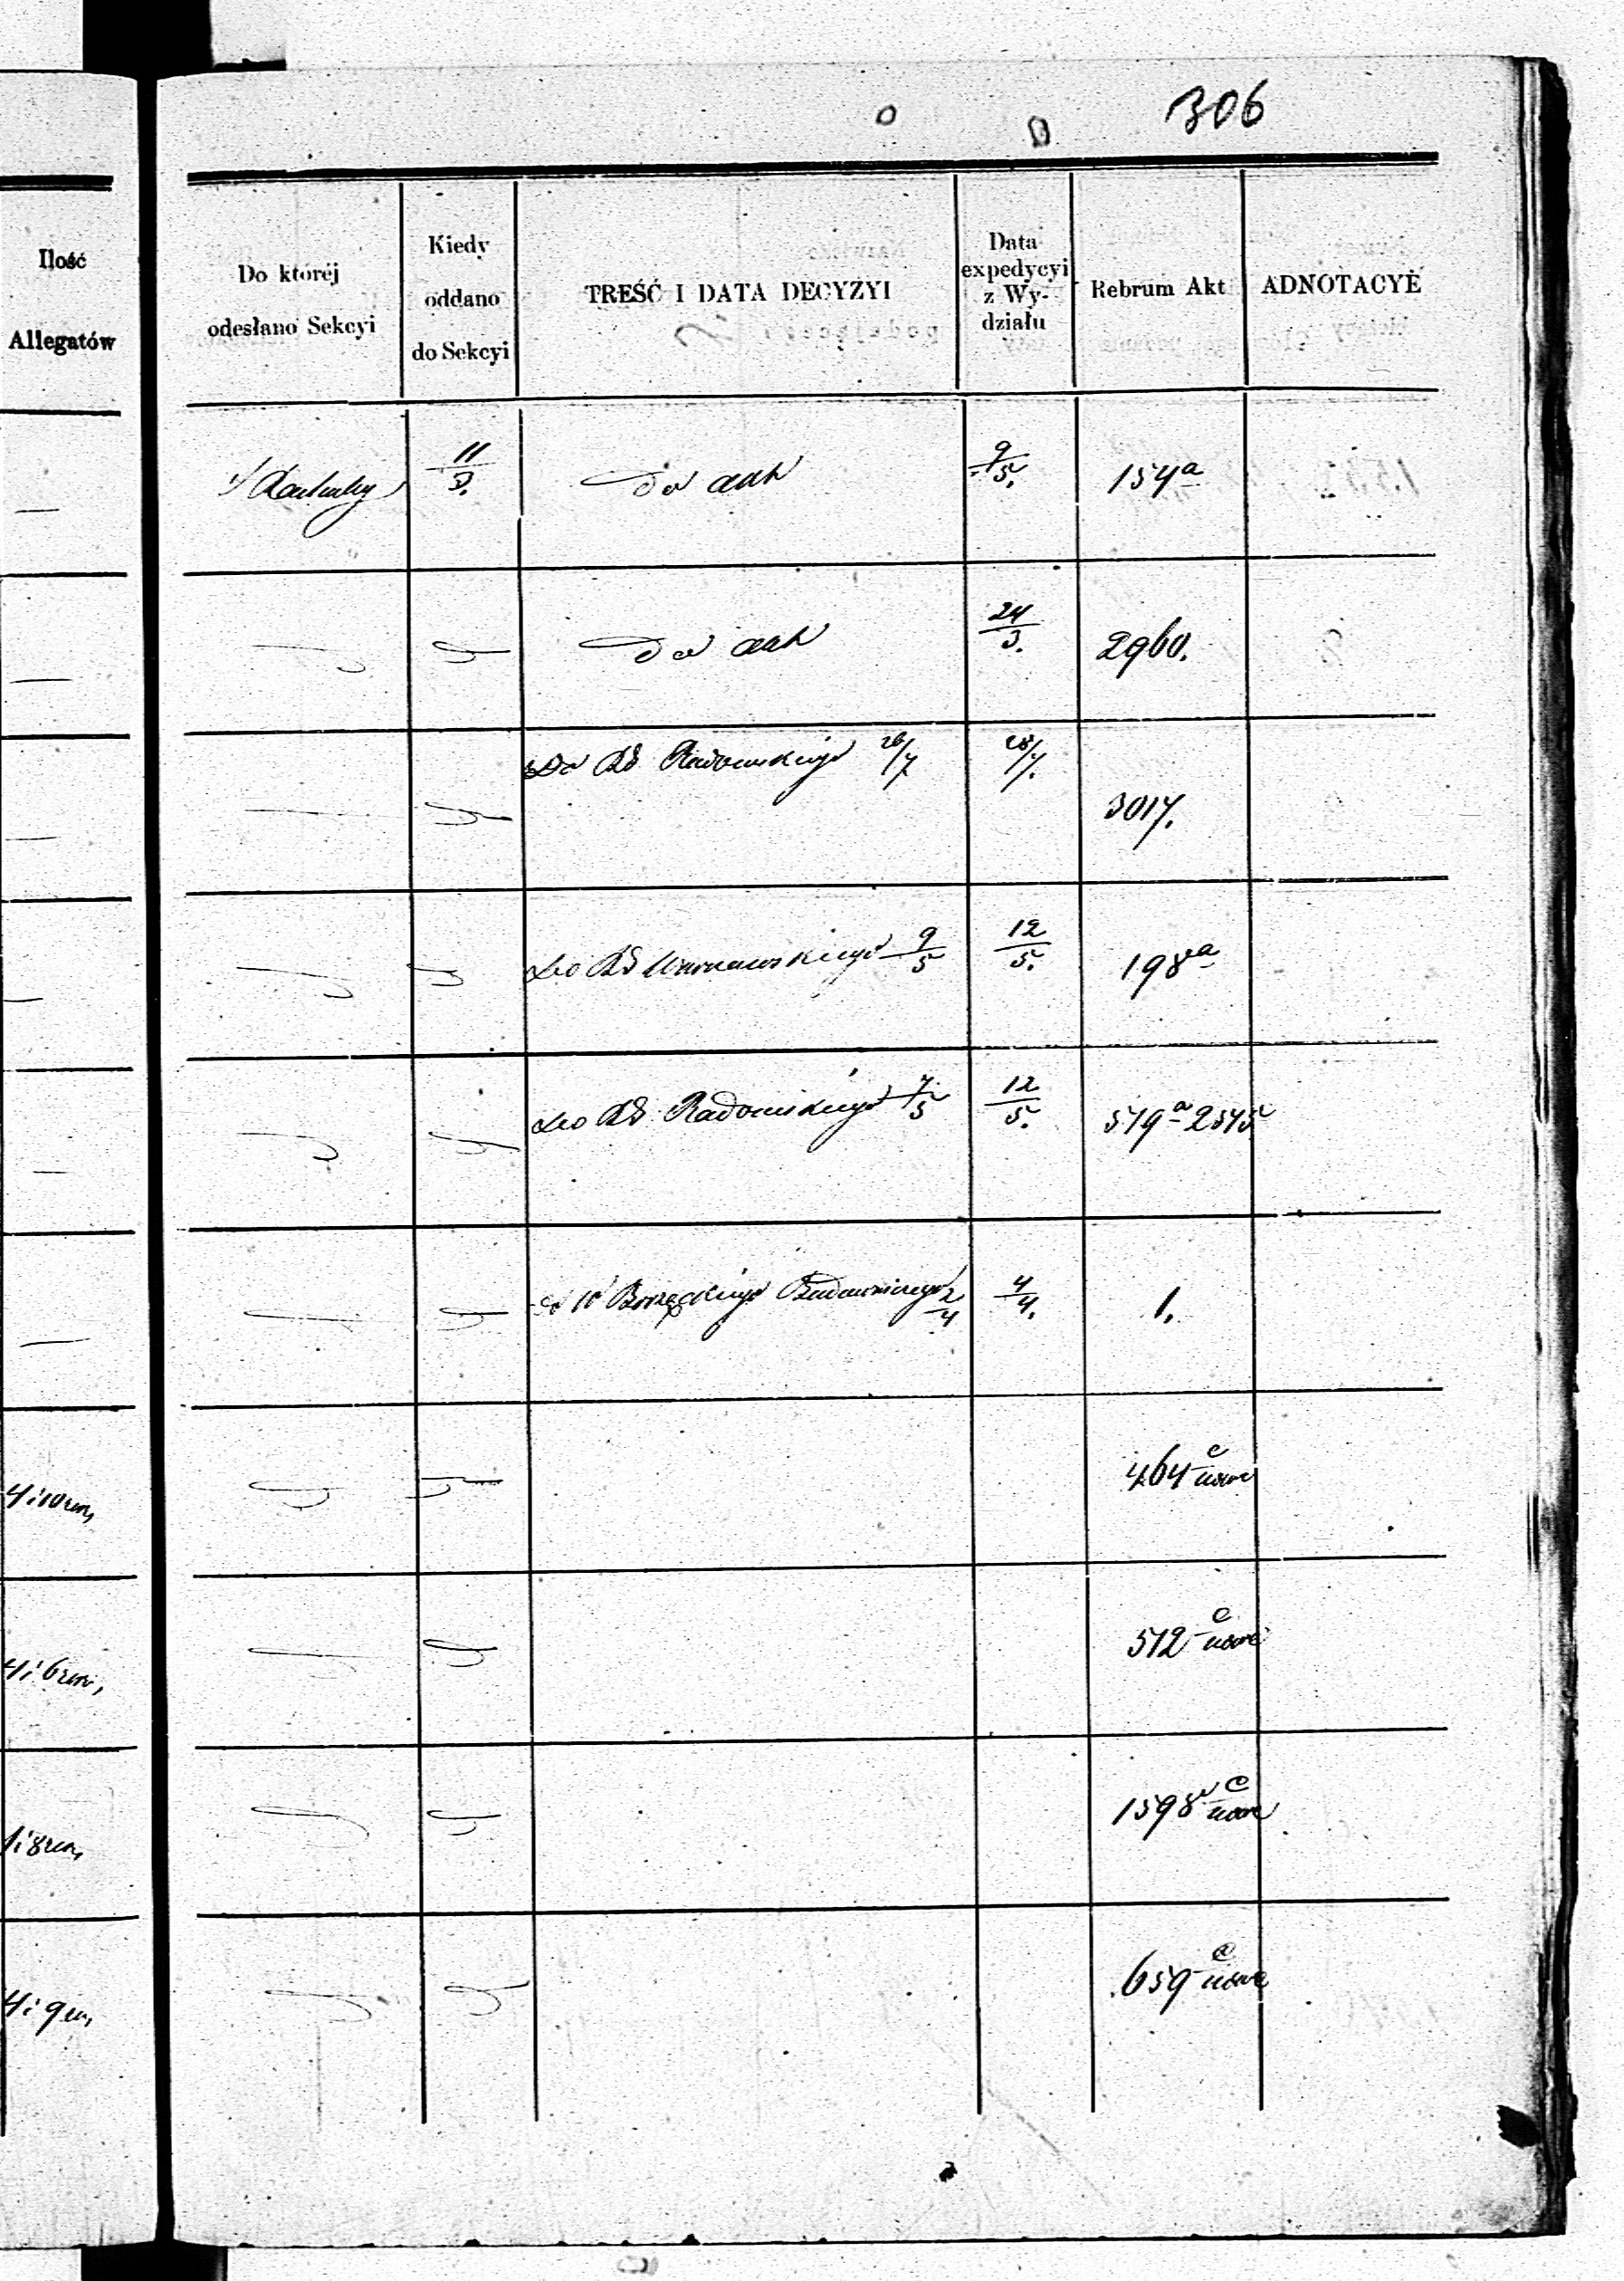 306
Ilość
Allegatów
Do któréj
odesłano Sekcyi
Kiedy
oddano
do Sekcyi
TREŚĆ I DATA DECYZYI
Data
expedycyi
z Wy-
działu
Rebrum Akt
ADNOTACYE
11/3. Do akt 9/5. 154a
Do akt 24/3. 2960.
Do RG Radomskiego 26/7 28/7.
3017.
Do RG Warszawskiego 9/5 12/5. 198a
Do RG Radomskiego 7/5 12/5. 519a 2545
Budowniczego 2/4 4/4. 1.
464 c nowe
512 c nowe
1598 c nowe
659 c nowe